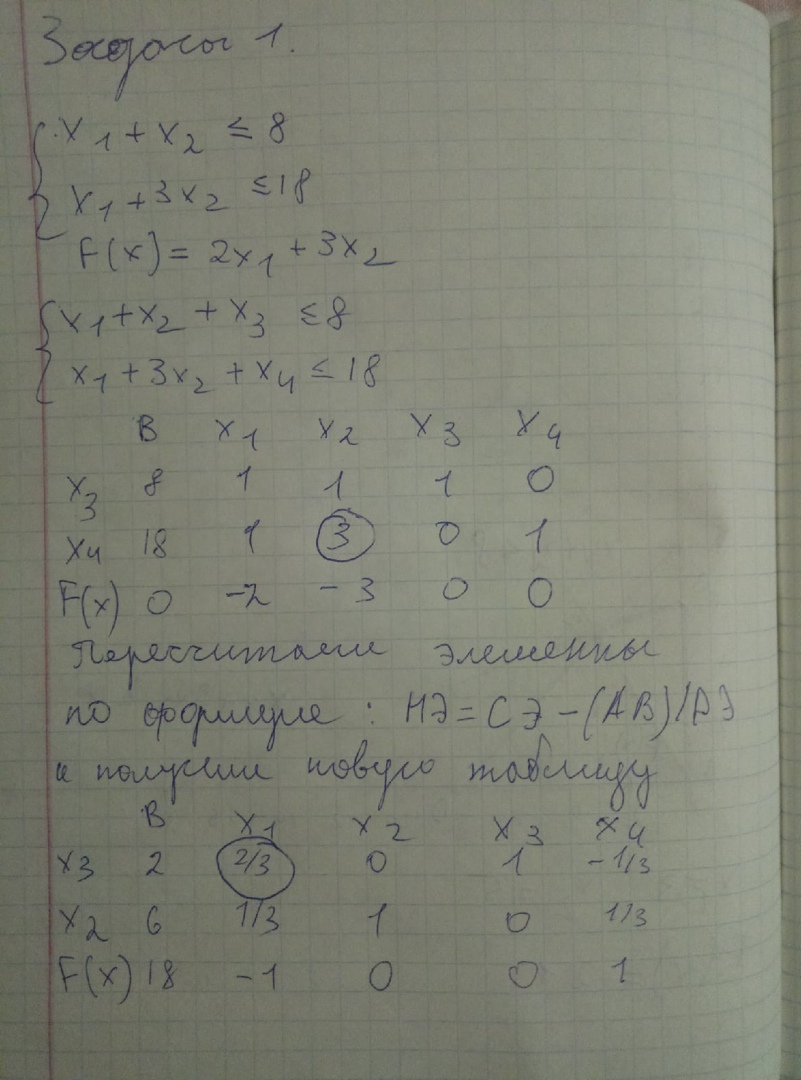 Задача 1.
x1 + x2 ≤ 8
x1 + 3x2 ≤ 18
F(x) = 2x1 + 3x2
x1 + x2 + x3 ≤ 8
x1 + 3x2 + x4 ≤ 18
В x1 x2 x3 x4
x3 8 1 1 1 0
x4 18 1 3 0 1
F(x) 0 -2 -3 0 0
Пересчитаем элементы
по формуле : НЭ = СЭ - (АВ)/РЭ
и получим новую таблицу
В x1 x2 x3 x4
x3 2 2/3 0 1 -1/3
x2 6 1/3 1 0 1/3
F(x) 18 -1 0 0 1